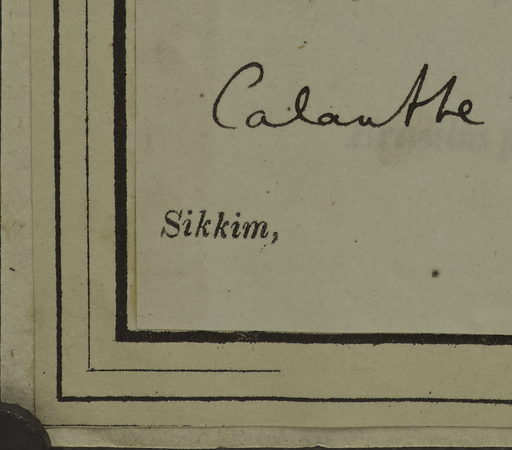 Calanthe
Sikkim,